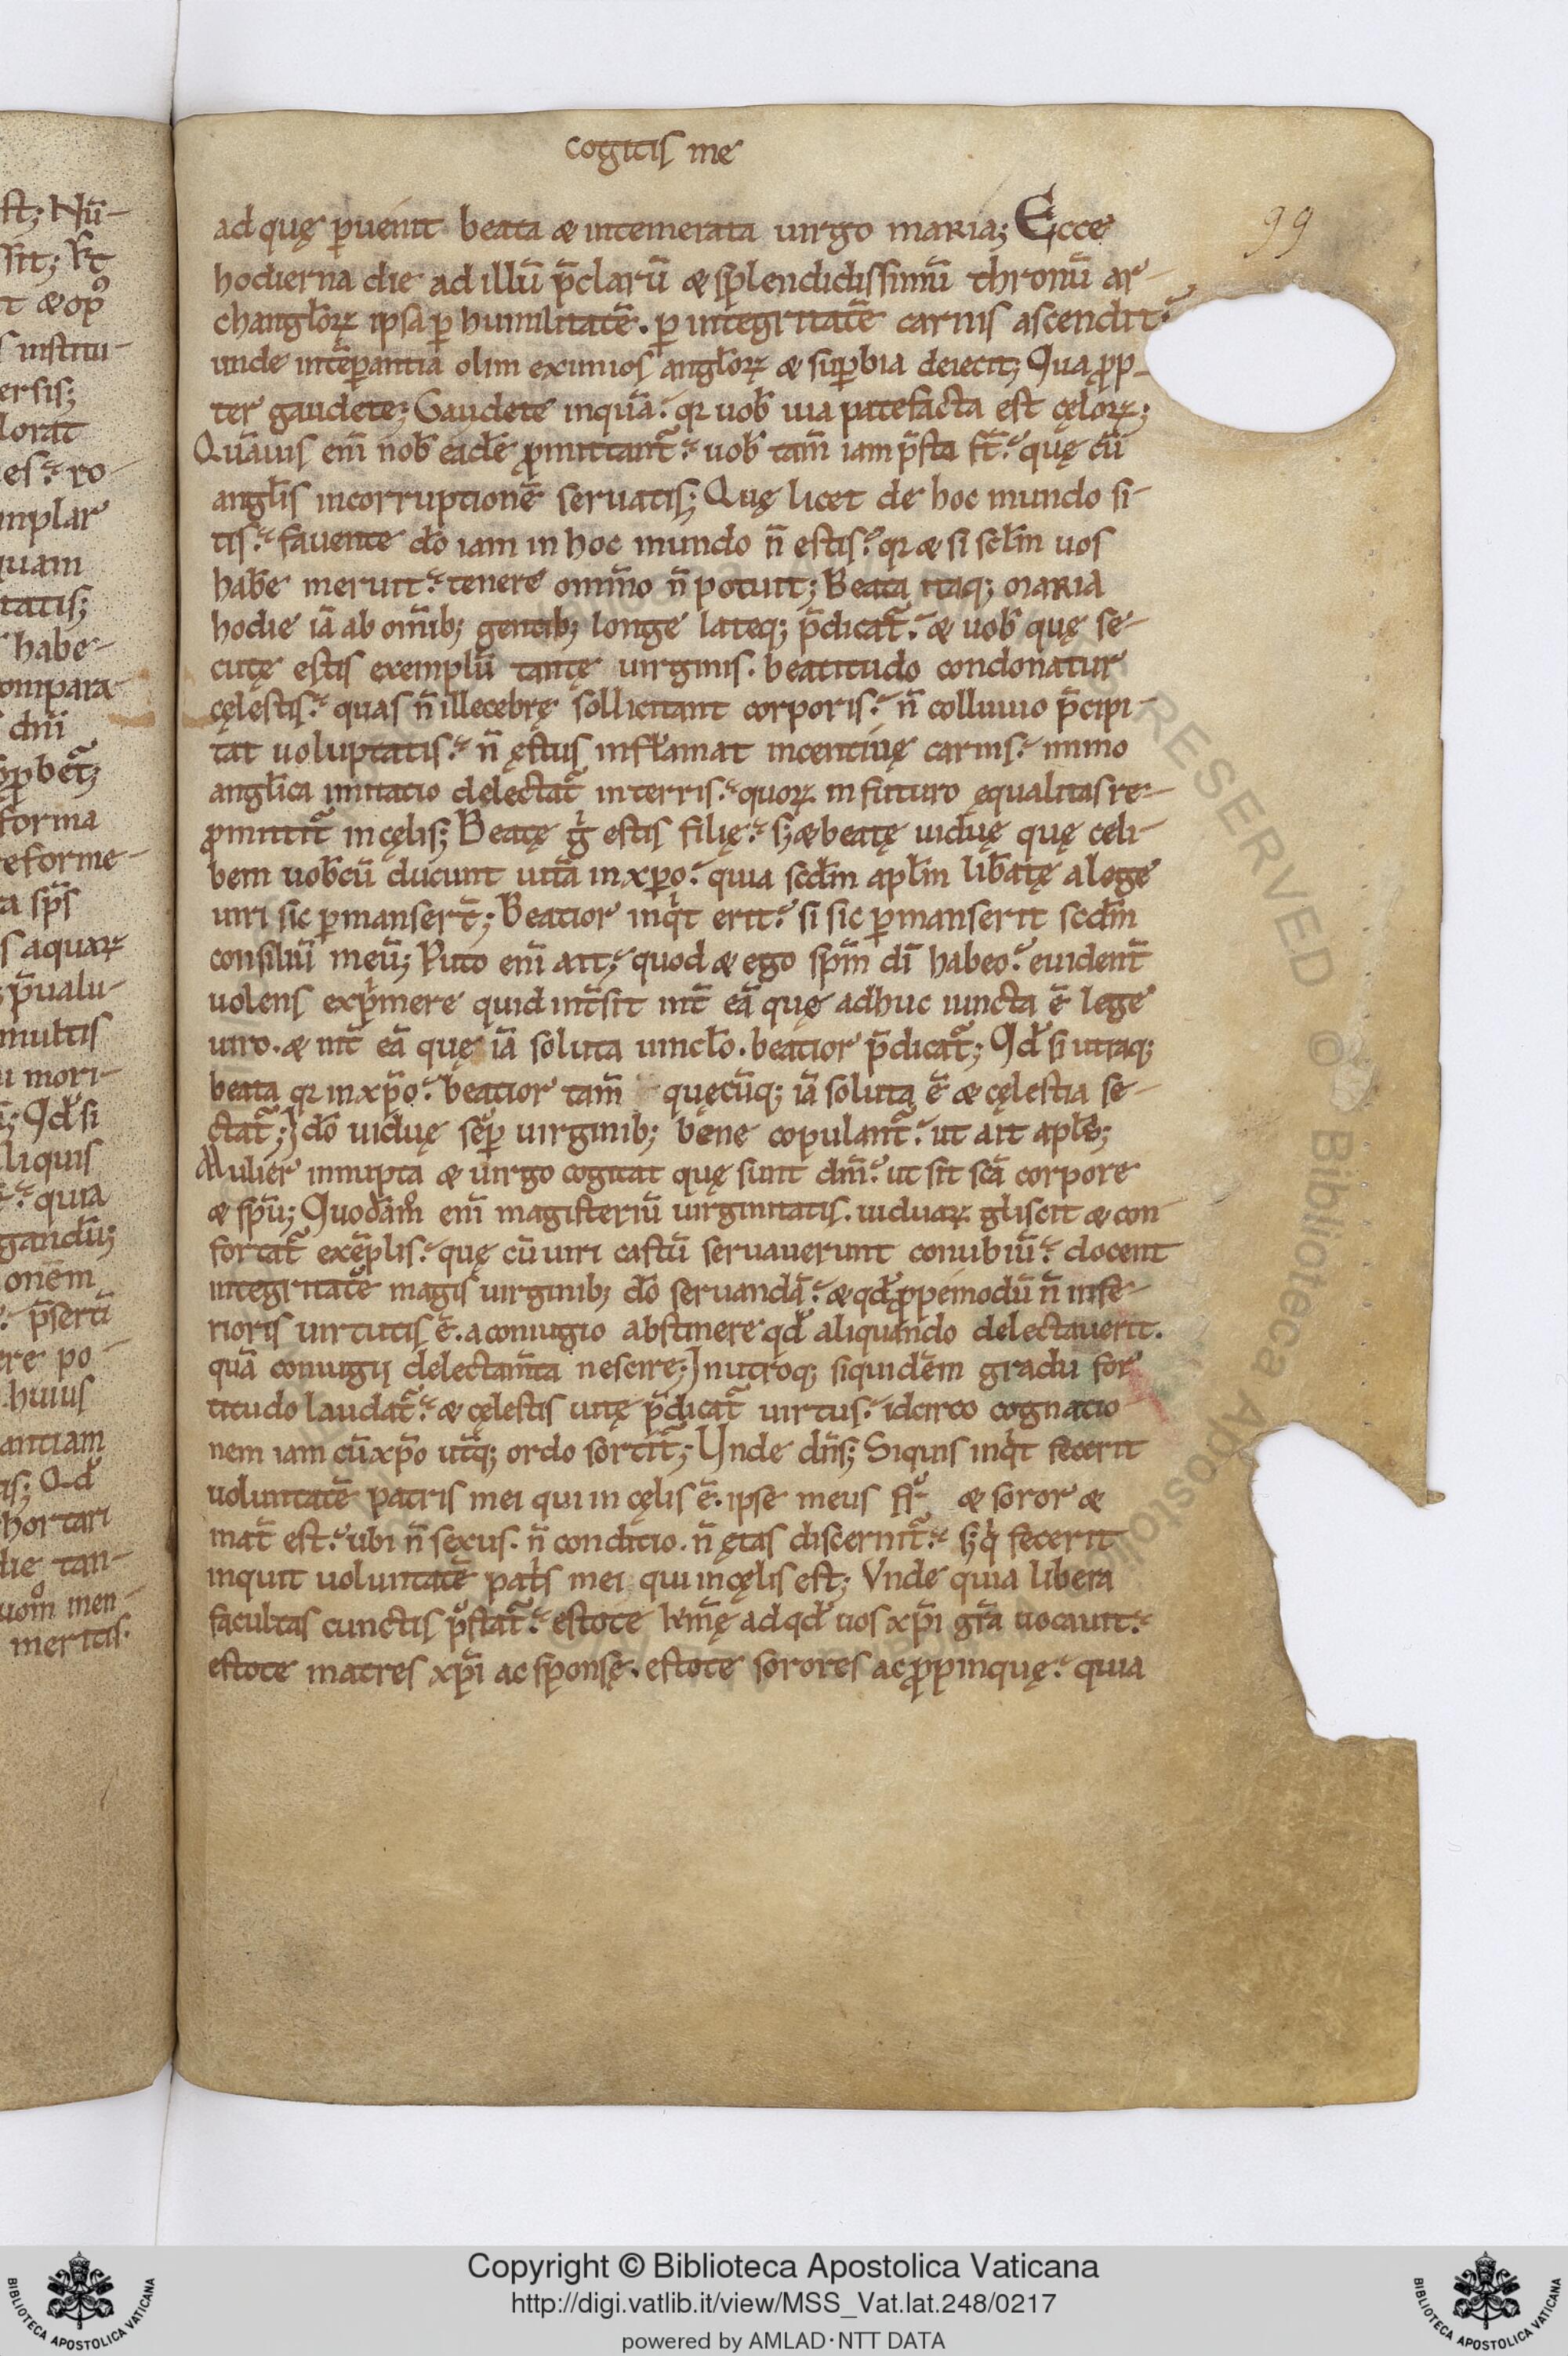 cogitis me
99
ad quę ꝑuenit beata & intemerata uirgo maria; Ecce
hodierna die ad illū p̄clarū & splendidissimū thronū ar-
changl̄oꝝ ipsa ꝑ humilitatē. ꝑ integritatē carnis ascendit.
unde intēꝑantia olim eximios angl̄oꝝ & suꝑbia deiecit; Qua ꝓp-
ter gaudete; Gaudete inquā. qr uob̄ uia patefacta est cęloꝝ;
Quāuis em̄ nob̄ eadē ꝓmittant̄. uob̄ tam̄ iam p̄sta st̄. quę cū
angl̄is incorruptionē seruatis; Quę licet de hoc mundo si-
tis. fauente dō iam in hoc mundo n̄ estis. qr & si sclm̄ uos
habe meruit. tenere omīno n̄ potuit; Beata itaq; maria
hodie iā ab omīb; gentib; longe lateq; p̄dicat̄. & uob̄ quę se-
cutę estis exemplū tantę uirginis. beatitudo condonatur
cęlestis. quas n̄ illecebrę sollicitant corporis. n̄ colluuio p̄cipi-
tat uoluptatis. n̄ ęstus inflamat incentiuę carnis. immo
angl̄ica imitatio delectat̄ in terris. quoꝝ in futuro ęqualitas re-
ꝓmittit̄ in cęlis; Beatę g̊ estis filię. s; & beatę uiduę quę celi-
bem uob̄cū ducunt uitā in xp̄o. quia scdm̄ aplm̄ lib̄atę a lege
uiri sic ꝑmansert̄; Beatior inq̇t erit. si sic ꝑmanserit scdm̄
consiliū meū; Puto em̄ ait. quod & ego spm̄ dī habeo. euident̄
uolens exp̍mere quid int̄sit int̄ eā quę adhuc iuncta ē lege
uiro. & int̄ eā quę iā soluta uincl̄o. beatior p̄dicat̄; Qđ si utraq;
beata qr in xp̄o. beatior tam̄ quęcūq; iā soluta ē & cęlestia se-
ctat̄; Idō uiduę seꝑ uirginib; bene copulant̄. ut ait apl̄s;
Mulier innupta & uirgo cogitat quę sunt dnī. ut sit scā corpore
& spū; Quodām̊ em̄ magisteriū uirginitatis. uiduaꝝ gliscit & con
fortat̄ exēplis. quę cū uiri castū seruauerunt conubiū. docent
integritatē magis uirginib; dō seruandā. & qđ ꝓpemodū n̄ infe-
rioris uirtutis ē. a coniugio abstinere qđ aliquando delectauerit.
quā coniugij delectam̄ta nescire; In utroq; siquidem gradu for
titudo laudat̄. & cęlestis uitę p̄dicat̄ uirtus. idcirco cognatio
nem iam cū xp̄o ut̄q; ordo sortit̄; Unde dn̄s; Siquis inq̇t fecerit
uoluntatē patris mei qui in cęlis ē. ipse meus fr̄ & soror &
mat̄ est. ubi n̄ sexus. n̄ conditio. n̄ ętas discernit̄. s; q̇ fecerit
inquit uoluntatē pat̍s mei qui in cęlis est; Vnde quia libera
facultas cunctis p̄stat̄. estote ad qđ uos xp̄i gr̄a uocauit.
estote matres xp̄i ac sponsę. estote sorores ac ꝓpinquę. quia
Copyright © Biblioteca Apostolica Vaticana
http://digi.vatlib.it/view/MSS_Vat.lat.248/0217
powered by AMLAD·NTT DATA